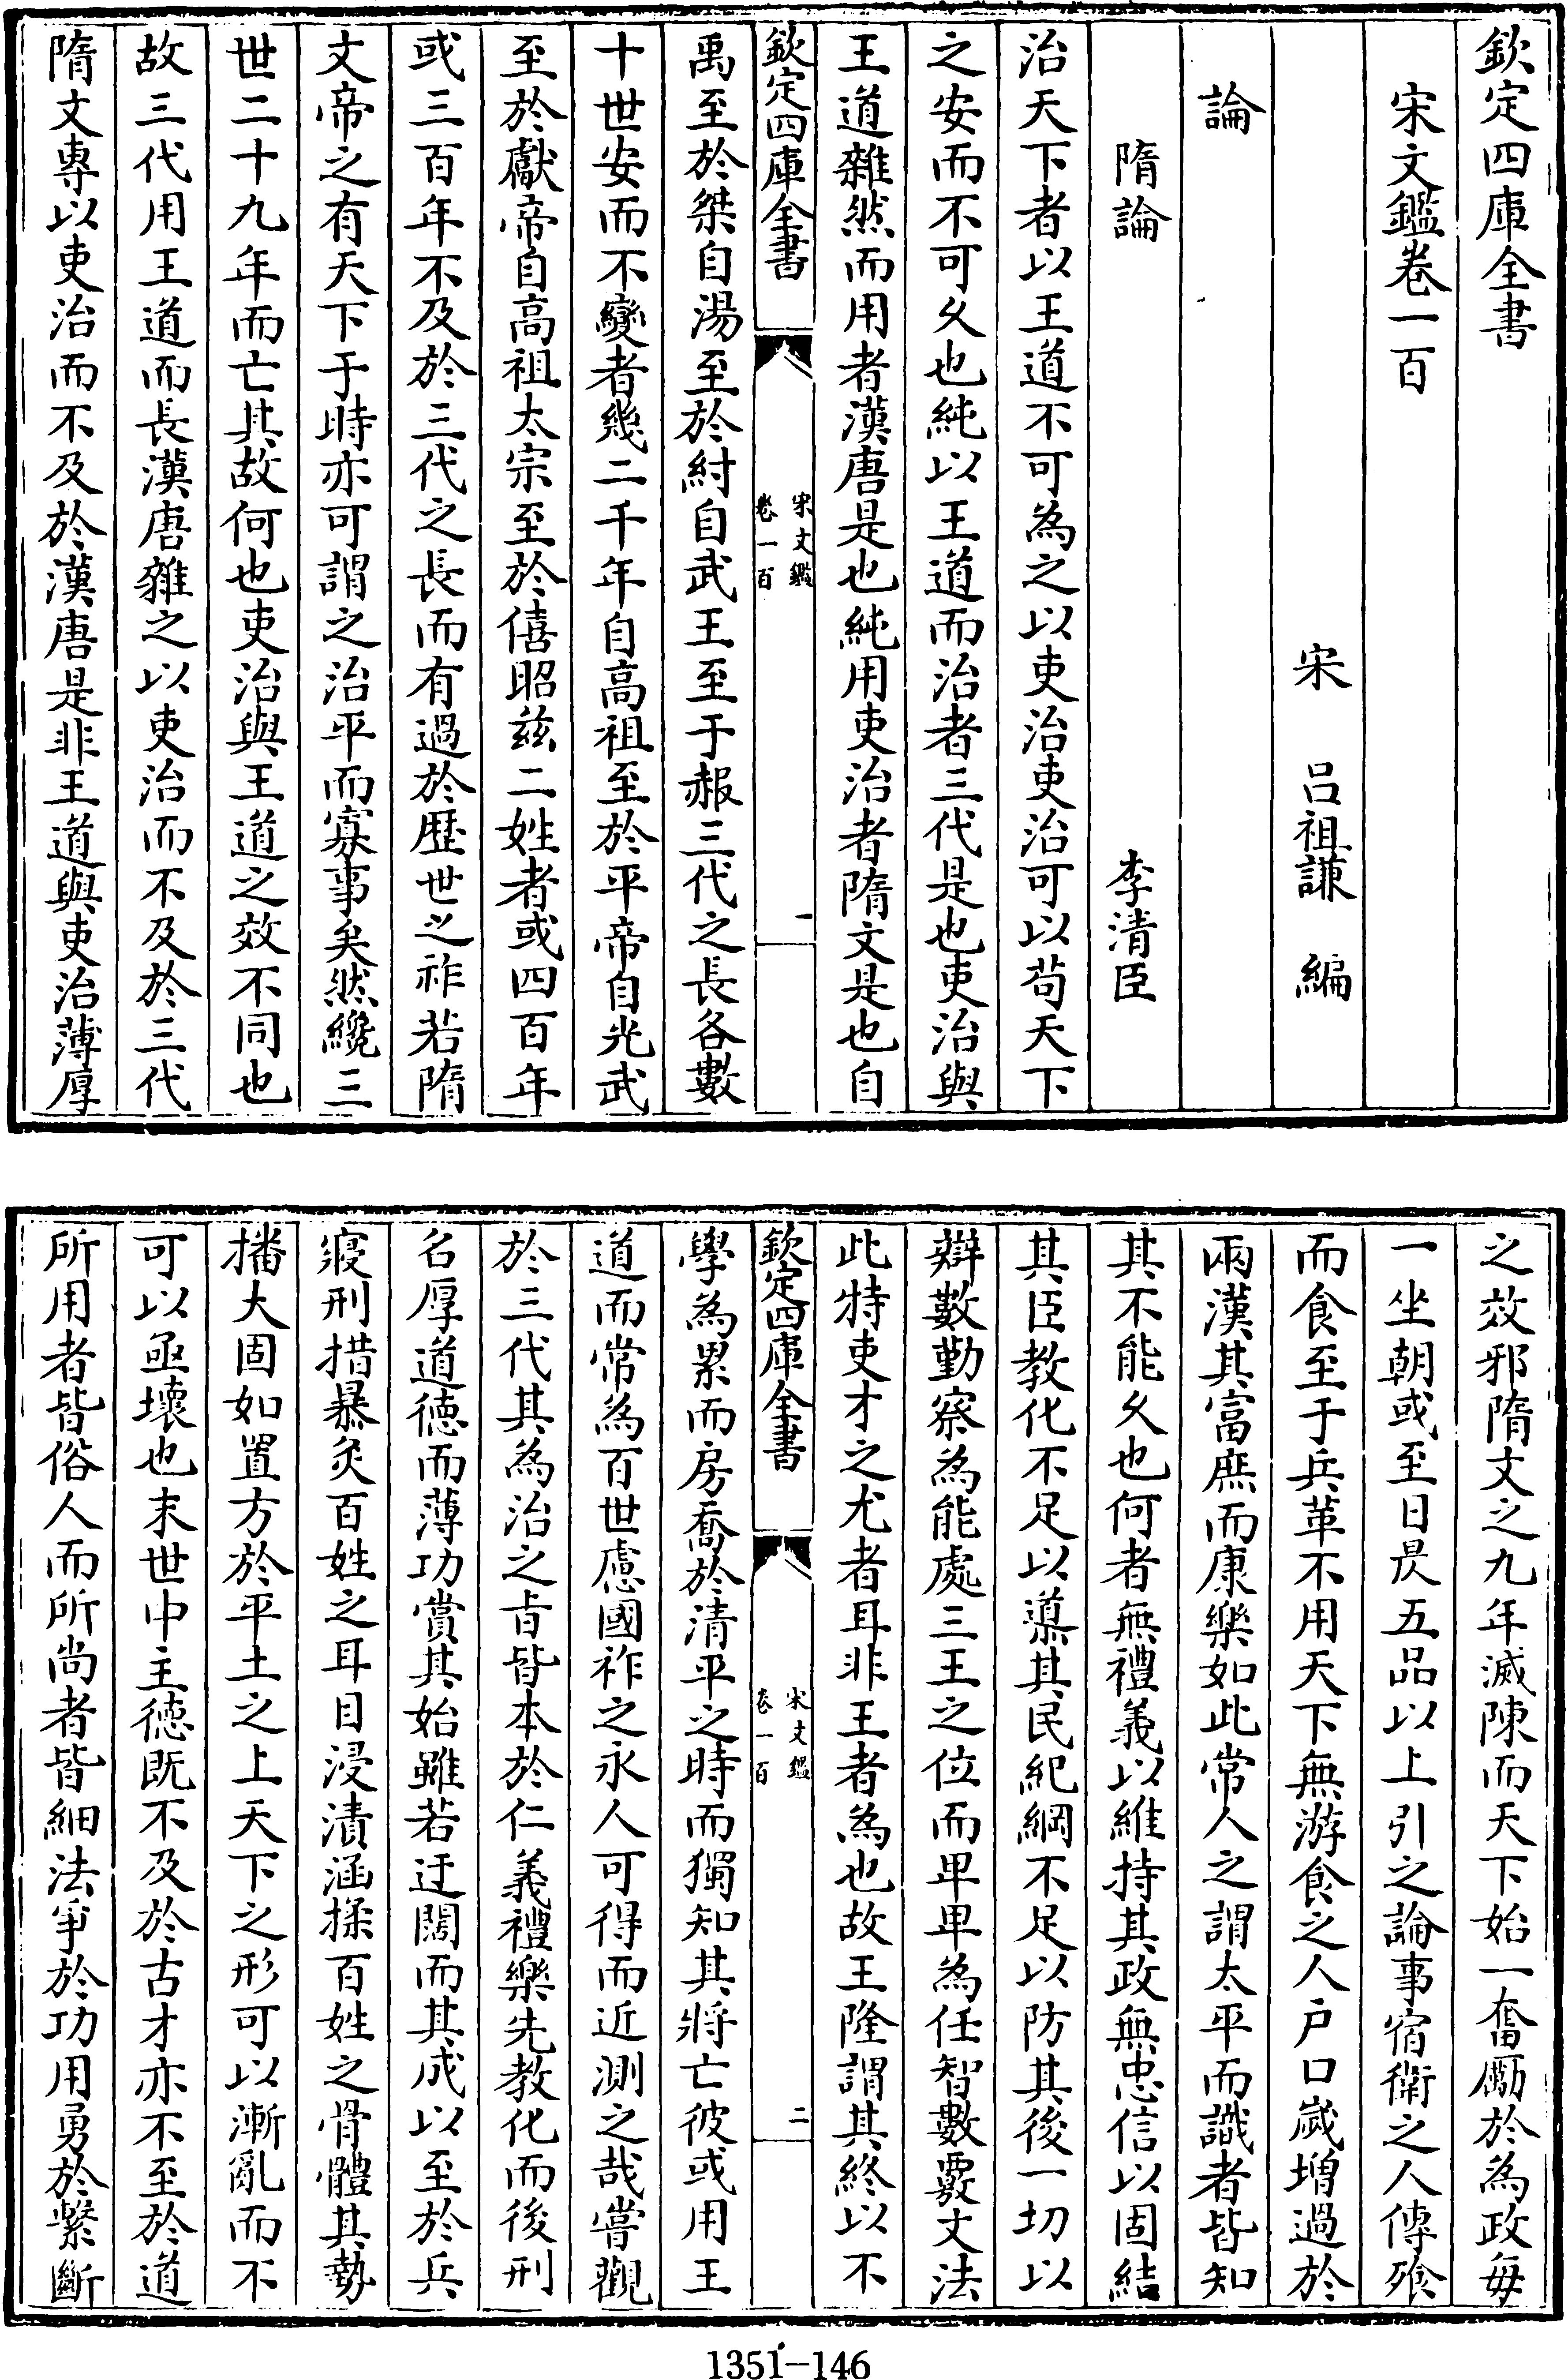 欽定四庫全書
宋文鑑卷一百
宋 吕祖謙 編
論
隋論 李清臣
治天下者以王道不可為之以吏治吏治可以苟天下
之安而不可久也純以王道而治者三代是也吏治與
王道雜然而用者漢唐是也純用吏治者隋文是也自
欽定四庫全書
宋文鑑
卷一百
一
禹至於桀自湯至於紂自武王至于赧三代之長各數
十世安而不變者幾二千年自高祖至於平帝自光武
至於獻帝自高祖太宗至於僖昭兹二姓者或四百年
或三百年不及於三代之長而有過於歷世之祚若隋
文帝之有天下于時亦可謂之治平而寡事矣然纔三
世二十九年而亡其故何也吏治與王道之效不同也
故三代用王道而長漢唐雜之以吏治而不及於三代
隋文專以吏治而不及於漢唐是非王道與吏治薄厚
之效邪隋文之九年滅陳而天下始一奮勵於為政每
一坐朝或至日昃五品以上引之論事宿衛之人傳飱
而食至于兵革不用天下無游食之人户口歲增過於
兩漢其富庶而康樂如此常人之謂太平而識者皆知
其不能久也何者無禮義以維持其政無忠信以固結
其臣教化不足以導其民紀綱不足以防其後一切以
辯數勤察為能處三王之位而卑卑為任智數覈文法
此特吏才之尤者耳非王者為也故王隆謂其終以不
欽定四庫全書
宋文鑑
卷一百
二
學為累而房喬於清平之時而獨知其將亡彼或用王
道而常為百世慮國祚之永人可得而近測之哉嘗觀
於三代其為治之㫖皆本於仁義禮樂先教化而後刑
名厚道德而薄功賞其始雖若迂闊而其成以至於兵
寢刑措暴炙百姓之耳目浸漬涵揉百姓之骨體其勢
播大固如置方於平土之上天下之形可以漸亂而不
可以亟壞也末世中主德既不及於古才亦不至於道
所用者皆俗人而所尚者皆細法爭於功用勇於繫斷
1351-146